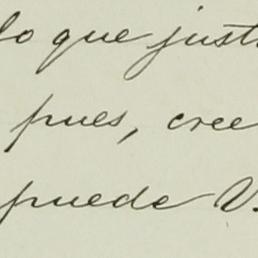 lo que just
pues, cree
puede V.